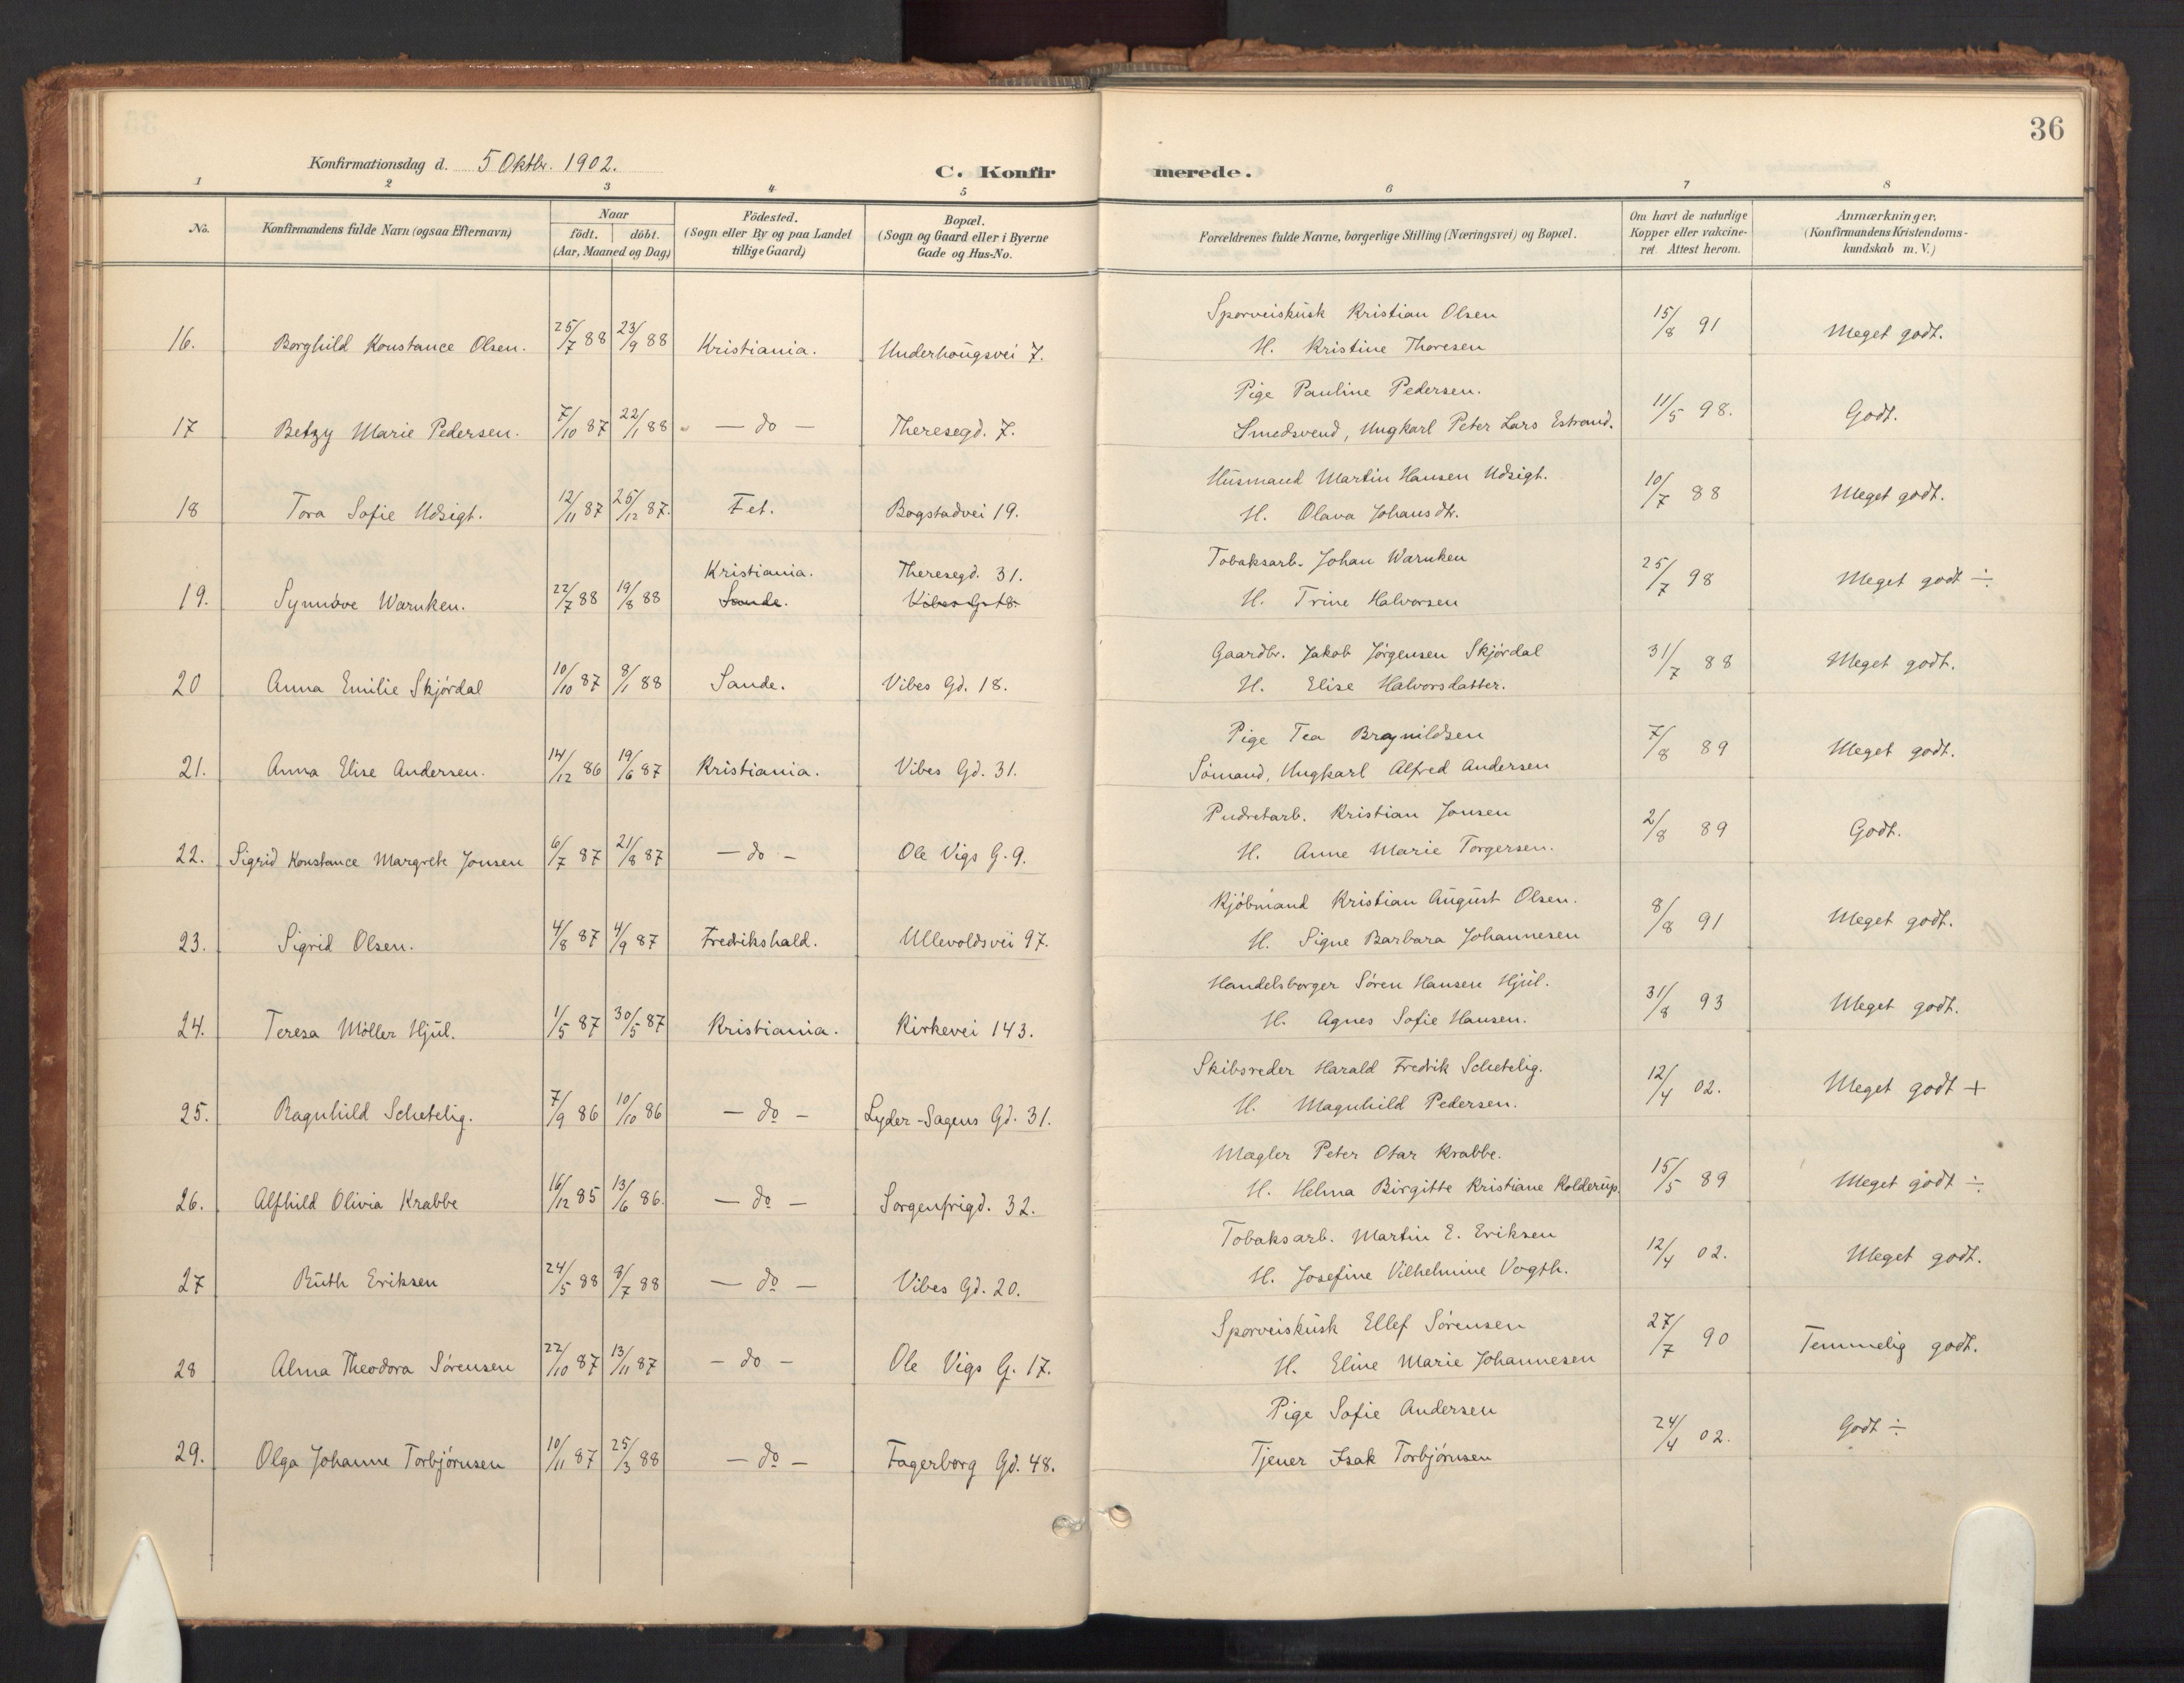 36
Konfirmationsdag d. 5 Oktbr. 1902. C. Konfirmerede.
1 2 3 4 5 6 7 8
No. Konfirmandens fulde Navn (ogsaa Efternavn) Naar födt. döbt. (Aar, Maaned og Dag) Födested. (Sogn eller By og paa Landet tillige Gaard) Bopæl. (Sogn og Gaard eller i Byerne Gade og Hus-No. Forældrenes fulde Navne, borgerlige Stilling (Næringsvei) og Bopæl. Om havt de naturlige Kopper eller vakcineret. Attest herom. Anmærkninger. (Konfirmandens Kristendomskundskab m. V.)
Sporveiskusk Kristian Olsen
16. Borghild Konstance Olsen. 25/7 88 23/9 88 Kristiania. Underhougsvei 7. H. Kristine Thoresen 15/8 91 Meget godt.
Pige Pauline Pedersen.
17 Betzy Marie Pedersen. 7/10 87 22/1 88 — do — Theresegd. 7. Smedsvend, Ungkarl Peter Lars Estrand. 11/5 98. Godt.
Husmand Martin Hansen Udsigt.
18 Tora Sofie Udsigt. 12/11 87 25/12 87. Fet. Bogstadvei 19. H. Olava Johansdtr. 10/7 88 Meget godt.
Kristiania. Theresegd. 31. Tobaksarb. Johan Warnken
19. Synnöve Warnken. 22/7 88 19/8 88 Sande. Vibes G. 18. H. Trine Halvorsen 25/7 98 Meget godt ÷
Gaardbr. Jakob Jörgensen Skjördal
20 Anna Emilie Skjördal 10/10 87 8/1 88 Sande. Vibes Gd. 18. H. Elise Halvorsdatter. 31/7 88 Meget godt.
Pige Tea Brynildsen
21. Anna Elise Andersen. 14/12 86 19/6 87 Kristiania. Vibes Gd. 31. Sömand, Ungkarl Alfred Andersen 7/8 89 Meget godt.
Pudretarb. Kristian Jonsen
22. Sigrid Konstance Margrete Jonsen 6/7 87 21/8 87 — do — Ole Vigs G. 9. H. Anne Marie Torgersen. 2/8 89 Godt.
Kjöbmand Kristian August Olsen.
23. Sigrid Olsen. 4/8 87 4/9 87 Fredrikshald. Ullevoldsvei 97. H. Signe Barbara Johannesen 8/8 91 Meget godt.
Handelsborger Sören Hansen Hjul.
24. Teresa Möller Hjul. 1/5 87 30/5 87 Kristiania. Kirkevei 143. H. Agnes Sofie Hansen. 31/8 93 Meget godt.
Skibsreder Harald Fredrik Schetelig.
25. Ragnhild Schetelig. 7/9 86 10/10 86 — do — Lyder-Sagens Gd. 31. H. Magnhild Pedersen. 12/4 02. Meget godt +
Mægler Peter Otar Krabbe.
26. Alfhild Olivia Krabbe 16/12 85 13/6 86. — do — Sorgenfrigd. 32. H. Helma Birgitte Kristiane Kolderup. 15/5 89 Meget godt ÷
Tobaksarb. Martin E. Eriksen
27 Ruth Eriksen 24/5 88 8/7 88 — do — Vibes Gd. 20. H. Josefine Vilhelmine Vogth. 12/4 02. Meget godt.
Sporveiskusk Ellef Sörensen
28 Alma Theodora Sörensen 22/10 87 13/11 87 — do — Ole Vigs G. 17. H. Eline Marie Johannesen 27/7 90 Temmelig godt.
Pige Sofie Andersen
29. Olga Johanne Torbjörnsen 10/11 87 25/3 88 — do — Fagerborg Gd. 48. Tjener Isak Torbjörnsen 24/4 02. Godt ÷